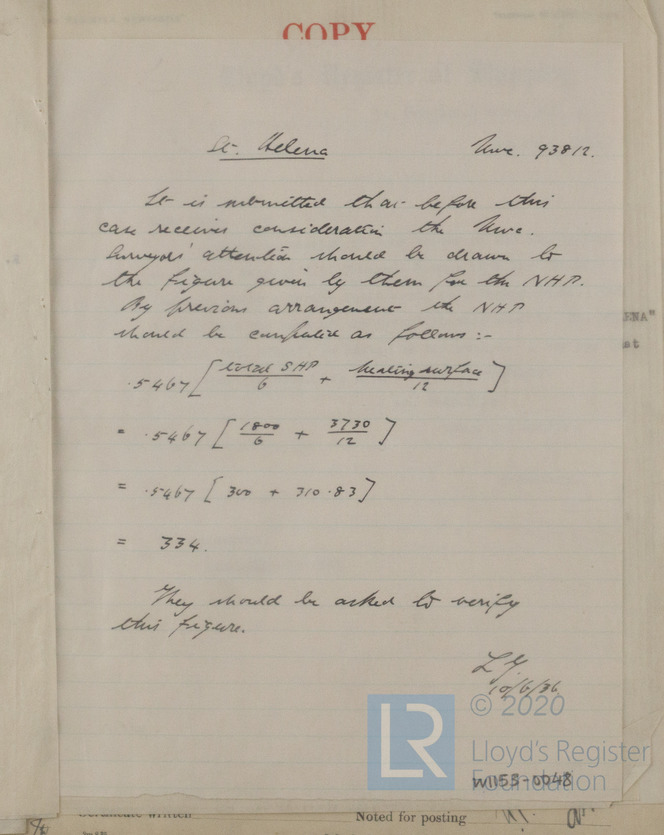 COPY
St. Helena Nwc. 93812.
It is submitted that before this
case receives consideration the Nwc.
Surveyors' attention should be drawn to
the figure given by them for the NHP.
By previous arrangement the NHP
should be computed as follows:-
.5467 [ total SHP / 6 + heating surface / 12 ]
= .5467 [ 1800 / 6 + 3730 / 12 ]
= .5467 [ 300 + 310.83 ]
= 334.
They should be asked to verify
this figure.
L.Y.
10/6/36.
ENA"
at
© 2020
LR
Lloyd's Register
Foundation
W1155-0048
Certificate written
Noted for posting